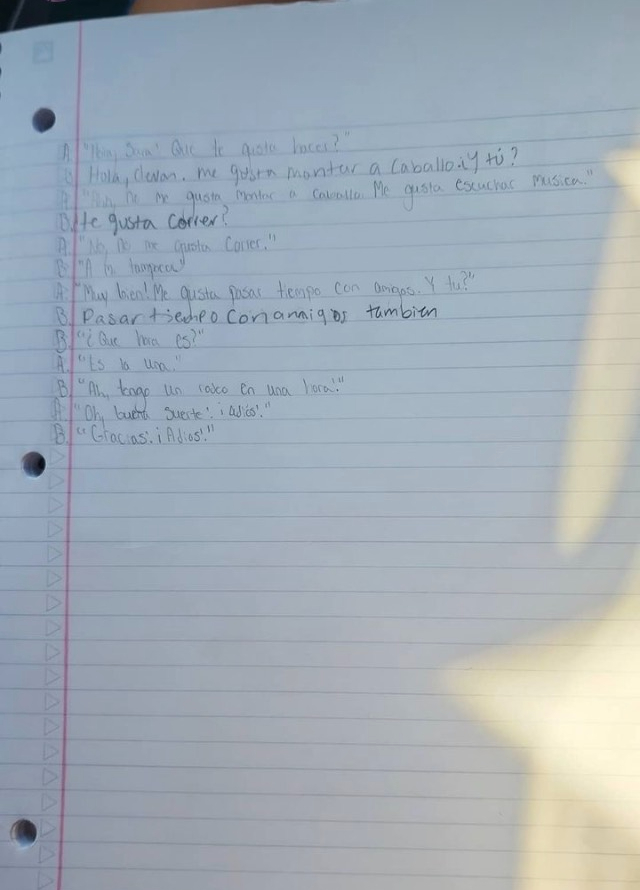 A. "Hola, Sara! Que te gusta hacer?"
B. Hola, devan. me gusta montar a caballo.¿Y tú?
A. "No me gusta montar a caballo. Me gusta escuchar musica."
B. te gusta correr?
A. "No, no me gusta correr."
B. "A mi tampoco"
A. "Muy bien! Me gusta pasar tiempo con amigos. Y tu?"
B. Pasar tiempo con amigos tambien
B. "¿Que hora es?"
A. "Es la una."
B. "Ah, tengo un en una hora!"
A. "Oh, buena suerte! ¡Adiós!"
B. "Gracias! ¡Adios!"